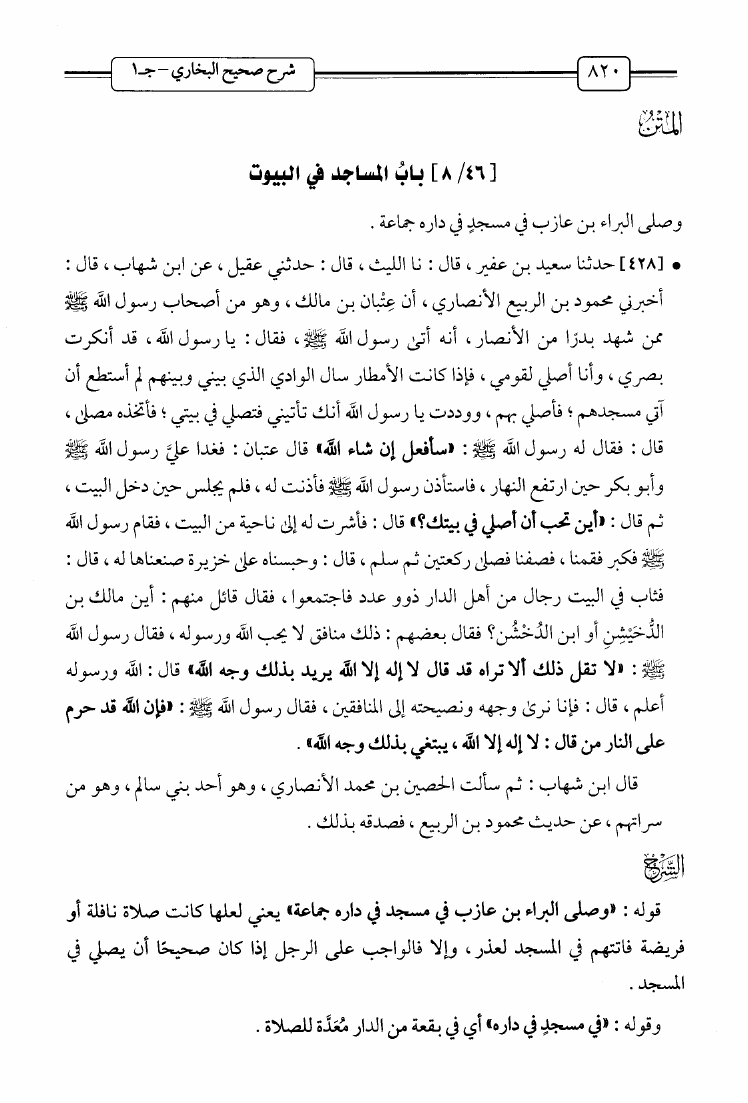 ٨٢٠ شرح صحيح البخاري - جـ١
المتن
[٨/٤٦] بابُ المساجد في البيوت
وصلى البراء بن عازب في مسجدٍ في داره جماعة .
• [٤٢٨] حدثنا سعيد بن عفير ، قال : نا الليث ، قال : حدثني عقيل ، عن ابن شهاب ، قال :
أخبرني محمود بن الربيع الأنصاري ، أن عِتْبان بن مالك ، وهو من أصحاب رسول الله ﷺ
ممن شهد بدرًا من الأنصار ، أنه أتى رسول الله ﷺ ، فقال : يا رسول الله ، قد أنكرت
بصري ، وأنا أصلي لقومي ، فإذا كانت الأمطار سال الوادي الذي بيني وبينهم لم أستطع أن
آتي مسجدهم ؛ فأصلي بهم ، ووددت يا رسول الله أنك تأتيني فتصلي في بيتي ؛ فأتخذه مصلى ،
قال : فقال له رسول الله ﷺ : «سأفعل إن شاء الله» قال عتبان : فغدا عليَّ رسول الله ﷺ
وأبو بكر حين ارتفع النهار ، فاستأذن رسول الله ﷺ فأذنت له ، فلم يجلس حين دخل البيت ،
ثم قال : «أين تحب أن أصلي في بيتك؟» قال : فأشرت له إلى ناحية من البيت ، فقام رسول الله
ﷺ فكبر فقمنا ، فصفنا فصلى ركعتين ثم سلم ، قال : وحبسناه على خزيرة صنعناها له ، قال :
فثاب في البيت رجال من أهل الدار ذوو عدد فاجتمعوا ، فقال قائل منهم : أين مالك بن
الدُّخَيْشِنِ أو ابن الدُّخْشُن؟ فقال بعضهم : ذلك منافق لا يحب الله ورسوله ، فقال رسول الله
ﷺ : «لا تقل ذلك ألا تراه قد قال لا إله إلا الله يريد بذلك وجه الله» قال : الله ورسوله
أعلم ، قال : فإنا نرى وجهه ونصيحته إلى المنافقين ، فقال رسول الله ﷺ : «فإن الله قد حرم
على النار من قال : لا إله إلا الله ، يبتغي بذلك وجه الله» .
قال ابن شهاب : ثم سألت الحصين بن محمد الأنصاري ، وهو أحد بني سالم ، وهو من
سراتهم ، عن حديث محمود بن الربيع ، فصدقه بذلك .
الشرح
قوله : «وصلى البراء بن عازب في مسجد في داره جماعة» يعني لعلها كانت صلاة نافلة أو
فريضة فاتتهم في المسجد لعذر ، وإلا فالواجب على الرجل إذا كان صحيحًا أن يصلي في
المسجد .
وقوله : «في مسجدٍ في داره» أي في بقعة من الدار مُعَدَّة للصلاة .